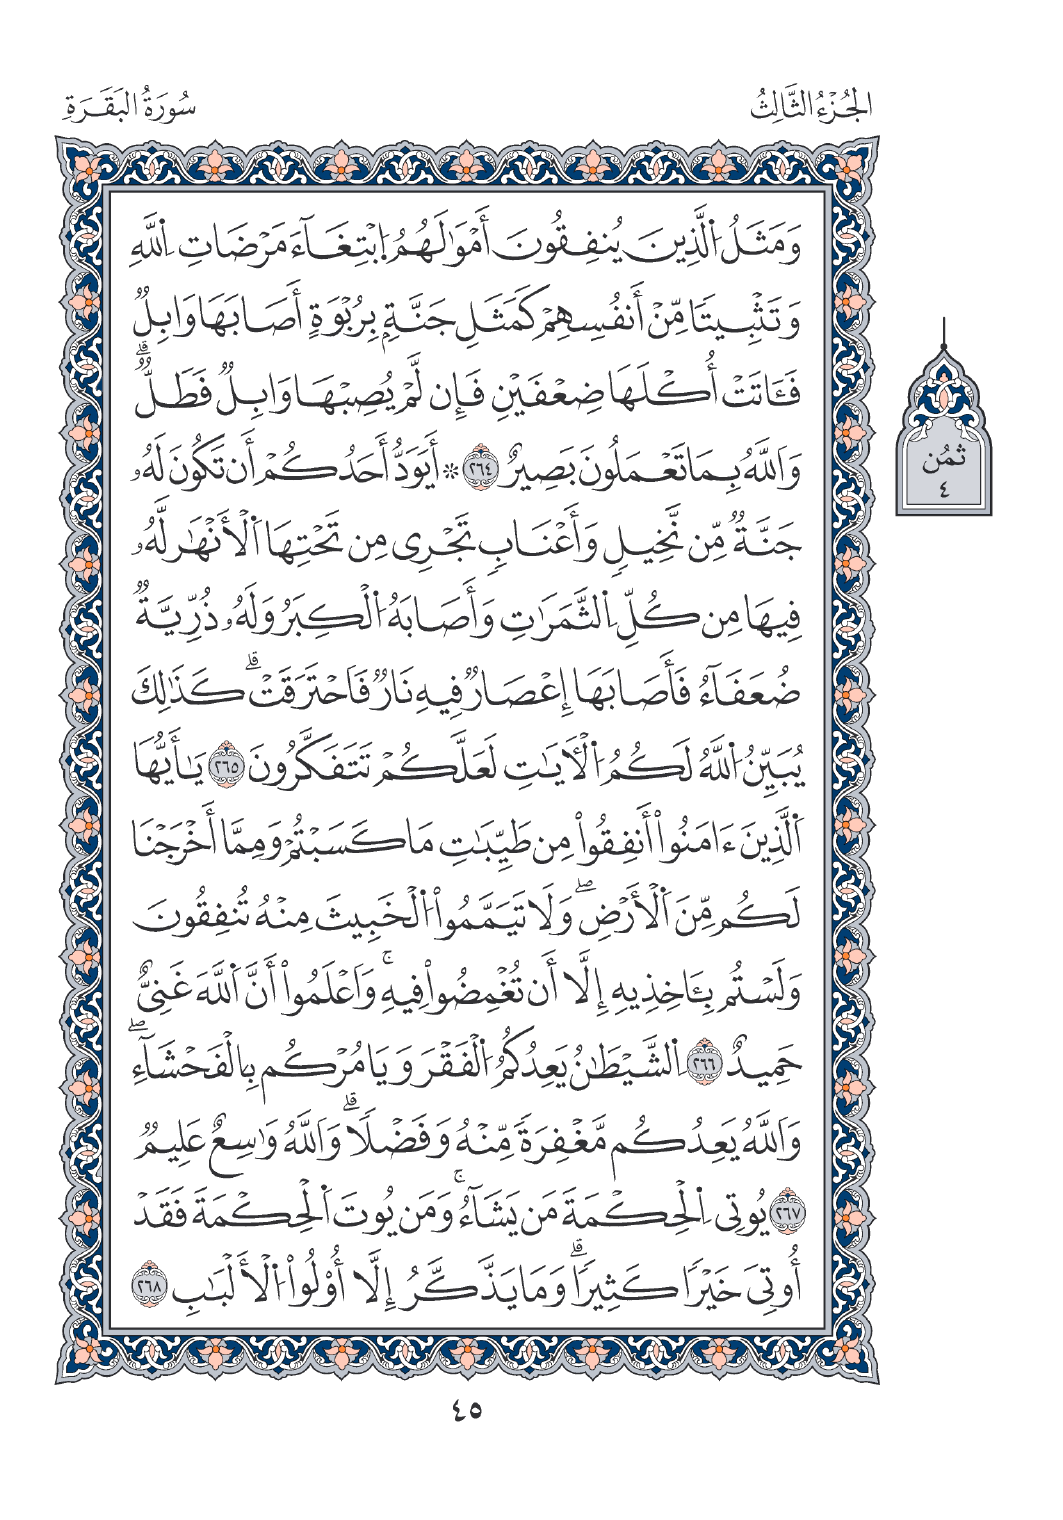 الجُزْءُ الثَّالِثُ
سُورَةُ البَقَرَةِ
وَمَثَلُ اُ۬لذِينَ يُنفِقُونَ أَمْوَٰلَهُمُ اُ۪بْتِغَآءَ مَرْضَاتِ اِ۬للَّهِ
وَتَثْبِيتاٗ مِّنْ أَنفُسِهِمْ كَمَثَلِ جَنَّةِۭ بِرُبْوَةٍ أَصَابَهَا وَابِلٞ
فَـَٔاتَتْ أُكْلَهَا ضِعْفَيْنِ فَإِن لَّمْ يُصِبْهَا وَابِلٞ فَطَلّٞۗ
وَاللَّهُ بِمَا تَعْمَلُونَ بَصِيرٌ ٢٦٤ ۞ أَيَوَدُّ أَحَدُكُمْ أَن تَكُونَ لَهُۥ
جَنَّةٞ مِّن نَّخِيلٖ وَأَعْنَابٖ تَجْرِي مِن تَحْتِهَا اَ۬لْأَنْهَٰرُ لَهُۥ
فِيهَا مِن كُلِّ اِ۬لثَّمَرَٰتِ وَأَصَابَهُ اُ۬لْكِبَرُ وَلَهُۥ ذُرِّيَّةٞ
ضُعَفَآءُ فَأَصَابَهَا إِعْصَارٞ فِيهِ نَارٞ فَاحْتَرَقَتْۗ كَذَٰلِكَ
يُبَيِّنُ اُ۬للَّهُ لَكُمُ اُ۬لْأٓيَٰتِ لَعَلَّكُمْ تَتَفَكَّرُونَ ٢٦٥ يَٰأَيُّهَا
اَ۬لَّذِينَ ءَامَنُواْ أَنفِقُواْ مِن طَيِّبَٰتِ مَا كَسَبْتُمْ وَمِمَّا أَخْرَجْنَا
لَكُم مِّنَ اَ۬لْأَرْضِۖ وَلَا تَيَمَّمُواْ اُ۬لْخَبِيثَ مِنْهُ تُنفِقُونَ
وَلَسْتُم بِـَٔاخِذِيهِ إِلَّا أَن تُغْمِضُواْ فِيهِۚ وَاَعْلَمُواْ أَنَّ اَ۬للَّهَ غَنِيٌّ
حَمِيدٌ ٢٦٦ اِ۬لشَّيْطَٰنُ يَعِدُكُمُ اُ۬لْفَقْرَ وَيَامُرْكُم بِالْفَحْشَآءِۖ
وَاللَّهُ يَعِدُكُم مَّغْفِرَةٗ مِّنْهُ وَفَضْلاٗۗ وَاللَّهُ وَٰسِعٌ عَلِيمٞ
٢٦٧ يُوتِي اِ۬لْحِكْمَةَ مَن يَشَآءُۚ وَمَن يُوتَ اَ۬لْحِكْمَةَ فَقَدْ
أُوتِيَ خَيْراٗ كَثِيراٗۗ وَمَا يَذَّكَّرُ إِلَّا أُوْلُواْ اُ۬لْأَلْبَٰبِ ٢٦٨
ثمُن
٤
٤٥